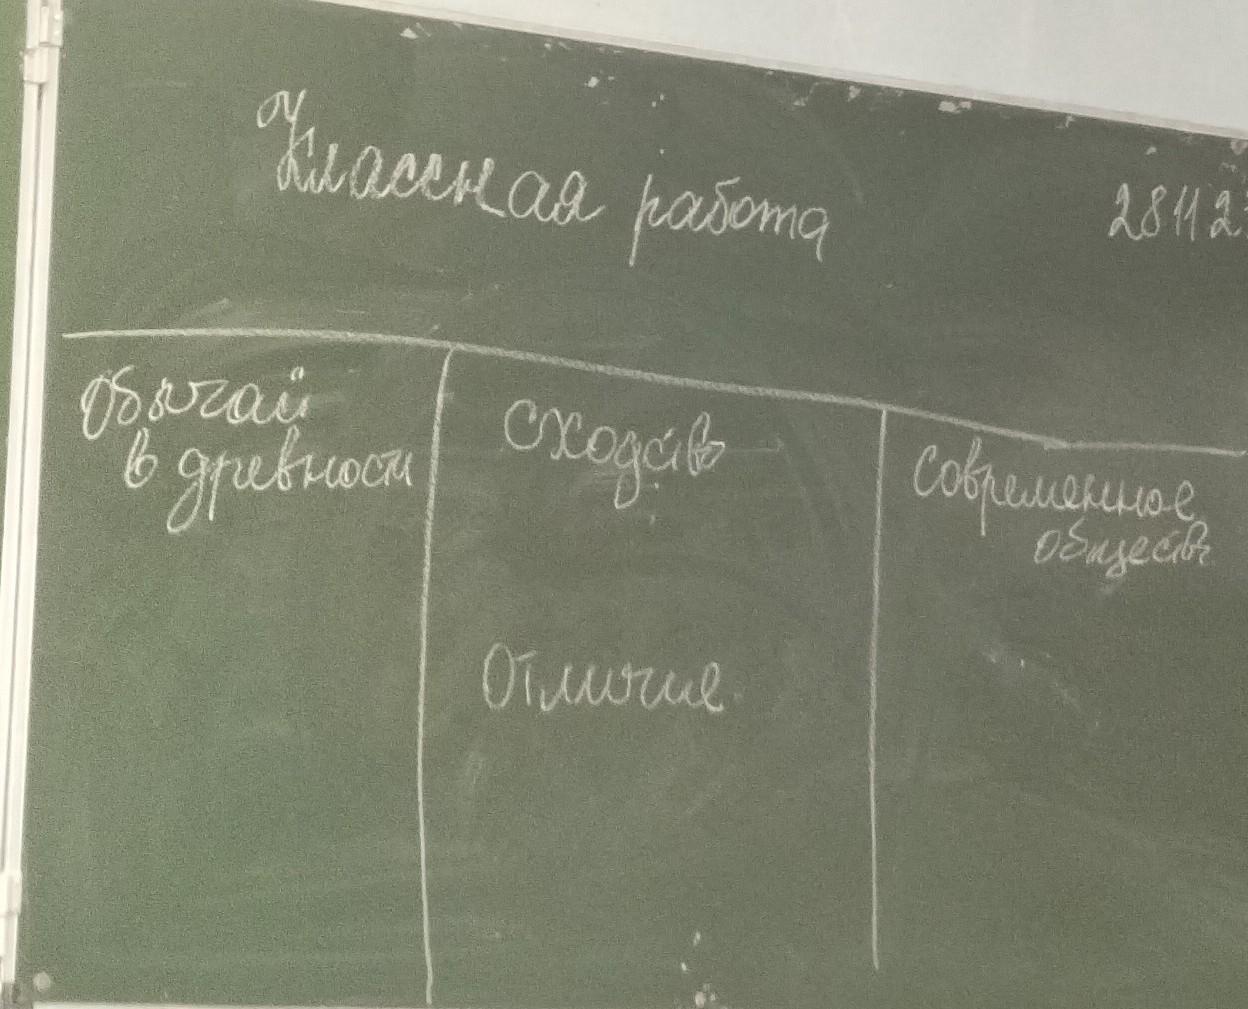 Классная работа
28 11 2
Обычай
в древности
Сходство
Современное
общество
Отличие